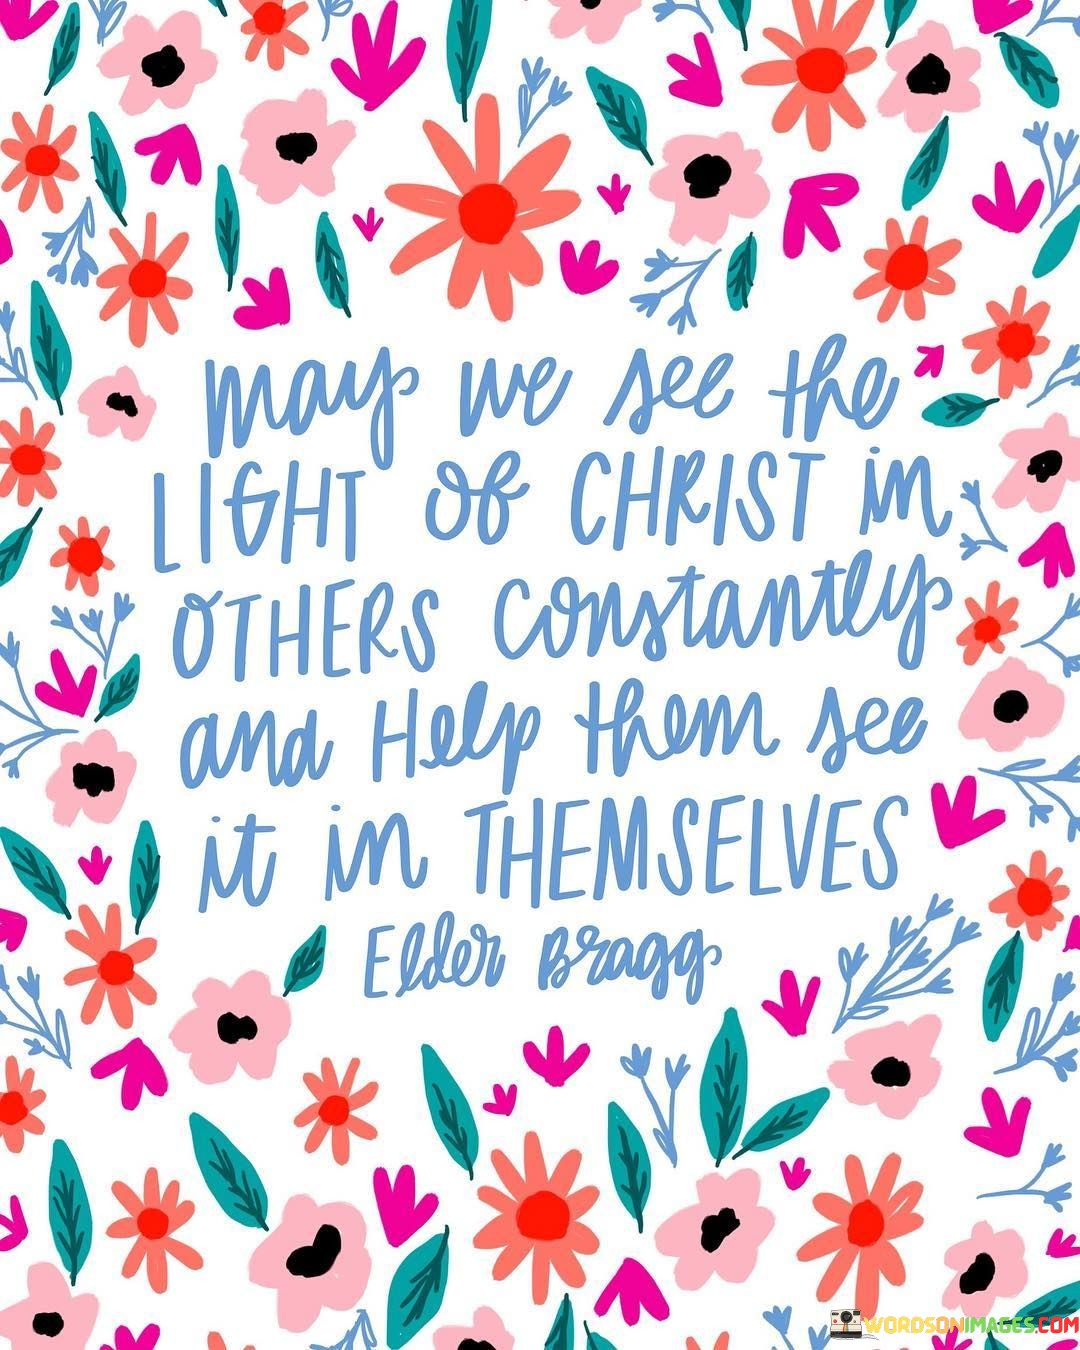 may we see the
LIGHT of CHRIST in
OTHERS constantly
and Help them see
it in THEMSELVES
Elder Bragg
WORDSONIMAGES.COM